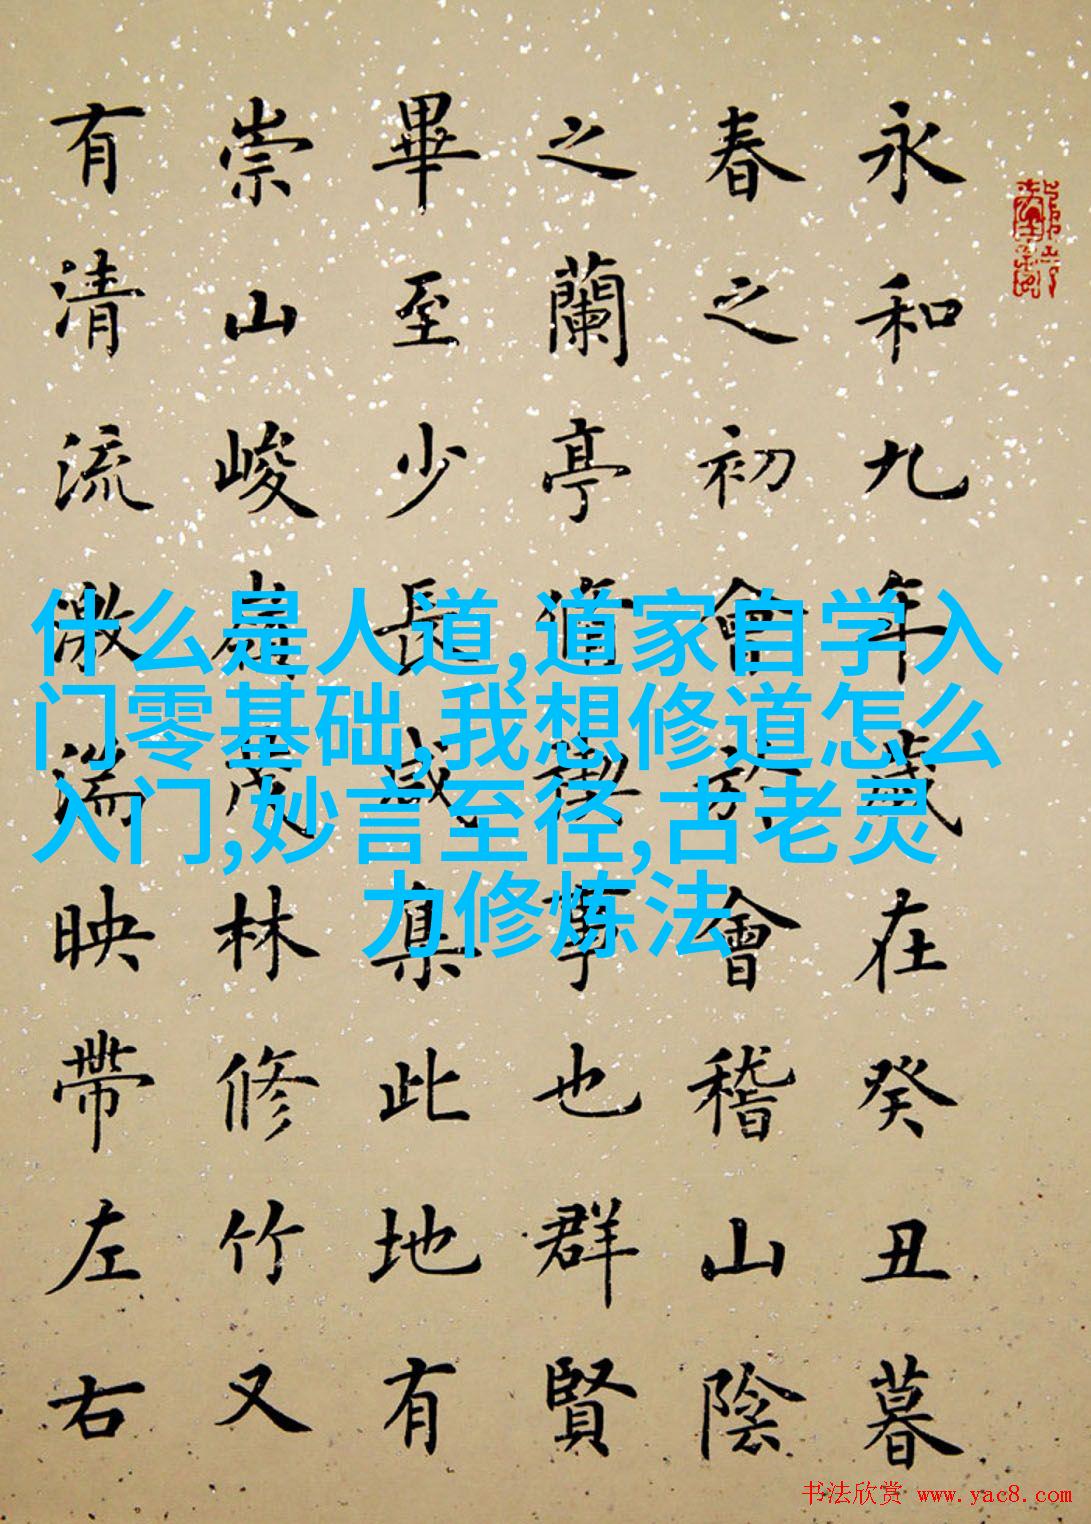 永和九年歲在癸丑暮
春之初會於會稽山陰
之蘭亭脩禊事也群賢
畢至少長咸集此地有
崇山峻嶺茂林修竹又
有清流激湍映帶左右
什么是人道,道家自学入
门零基础,我想修道怎么
入门,妙言至径,古老灵
力修炼法
书法欣赏 www.yac8.com